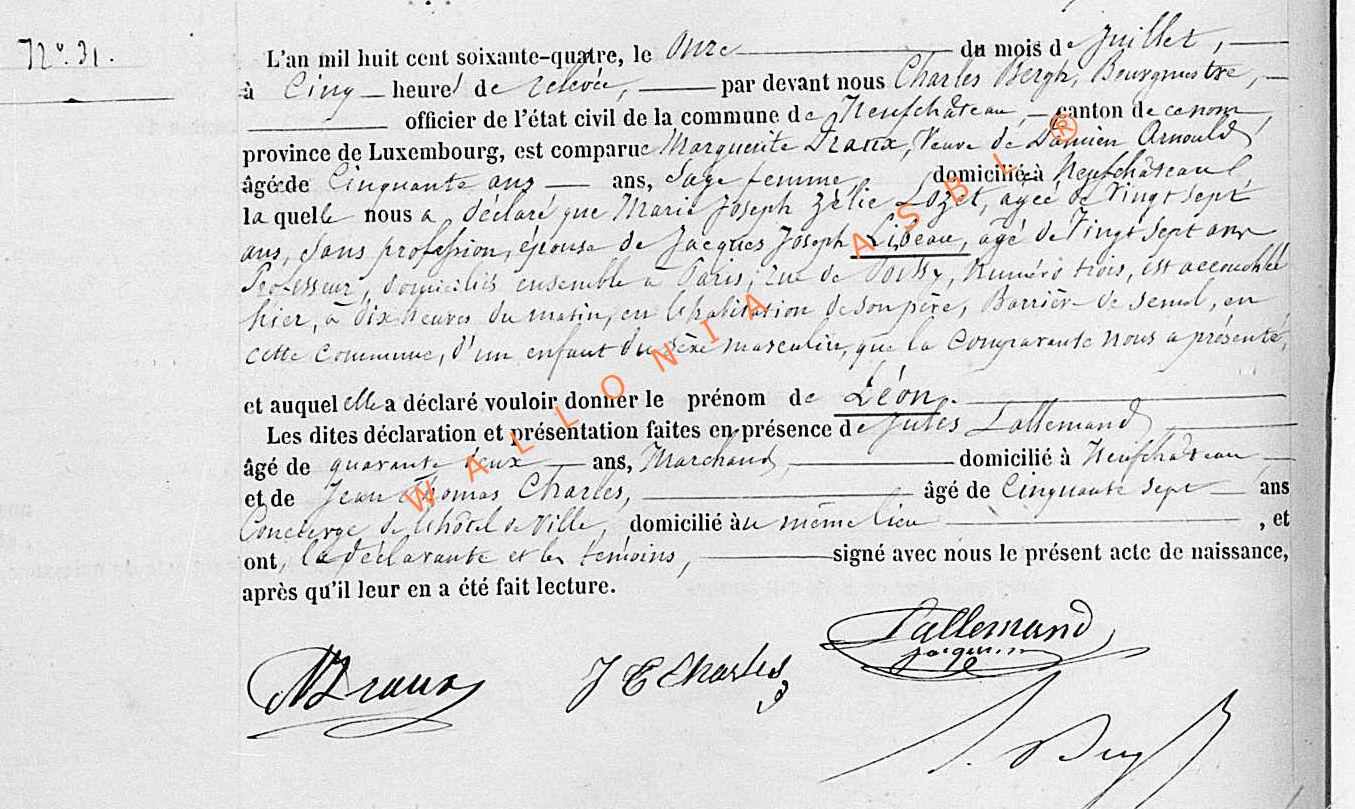 N°. 31.
L'an mil huit cent soixante-quatre, le onze du mois de Juillet,
à Cinq heures de relevée, par devant nous Charles Bergh, Bourgmestre,
officier de l'état civil de la commune de Neufchâteau, canton de ce nom,
province de Luxembourg, est comparue Marguerite Draux, Veuve de Damien Arnould,
âgée de Cinquante ans ans, Sage femme, domiciliée à Neufchâteau,
la quelle nous a déclaré que Marie Joseph Zélie Lozet, agée de Vingt sept
ans, sans profession, épouse de Jacques Joseph Libeau, agé de Vingt sept ans
Professeur, domiciliés ensemble à Paris, rue de Poissy, Numéro trois, est accouchée
hier, à dix heures du matin, en l'habitation de son père, Barrière de Semel, en
cette commune, d'un enfant du sèxe masculin, que la Comparante nous a présenté,
et auquel elle a déclaré vouloir donner le prénom de Léon.
Les dites déclaration et présentation faites en présence de Jules Lallemand
âgé de quarante deux ans, Marchand, domicilié à Neufchâteau
et de Jean Thomas Charles, âgé de Cinquante sept ans
Concierge de l'hôtel de Ville, domicilié au même lieu, et
ont, la déclarante et les témoins, signé avec nous le présent acte de naissance,
après qu'il leur en a été fait lecture.
Lallemand
MDraux
J T Charles
WALLONIA ASBL ®